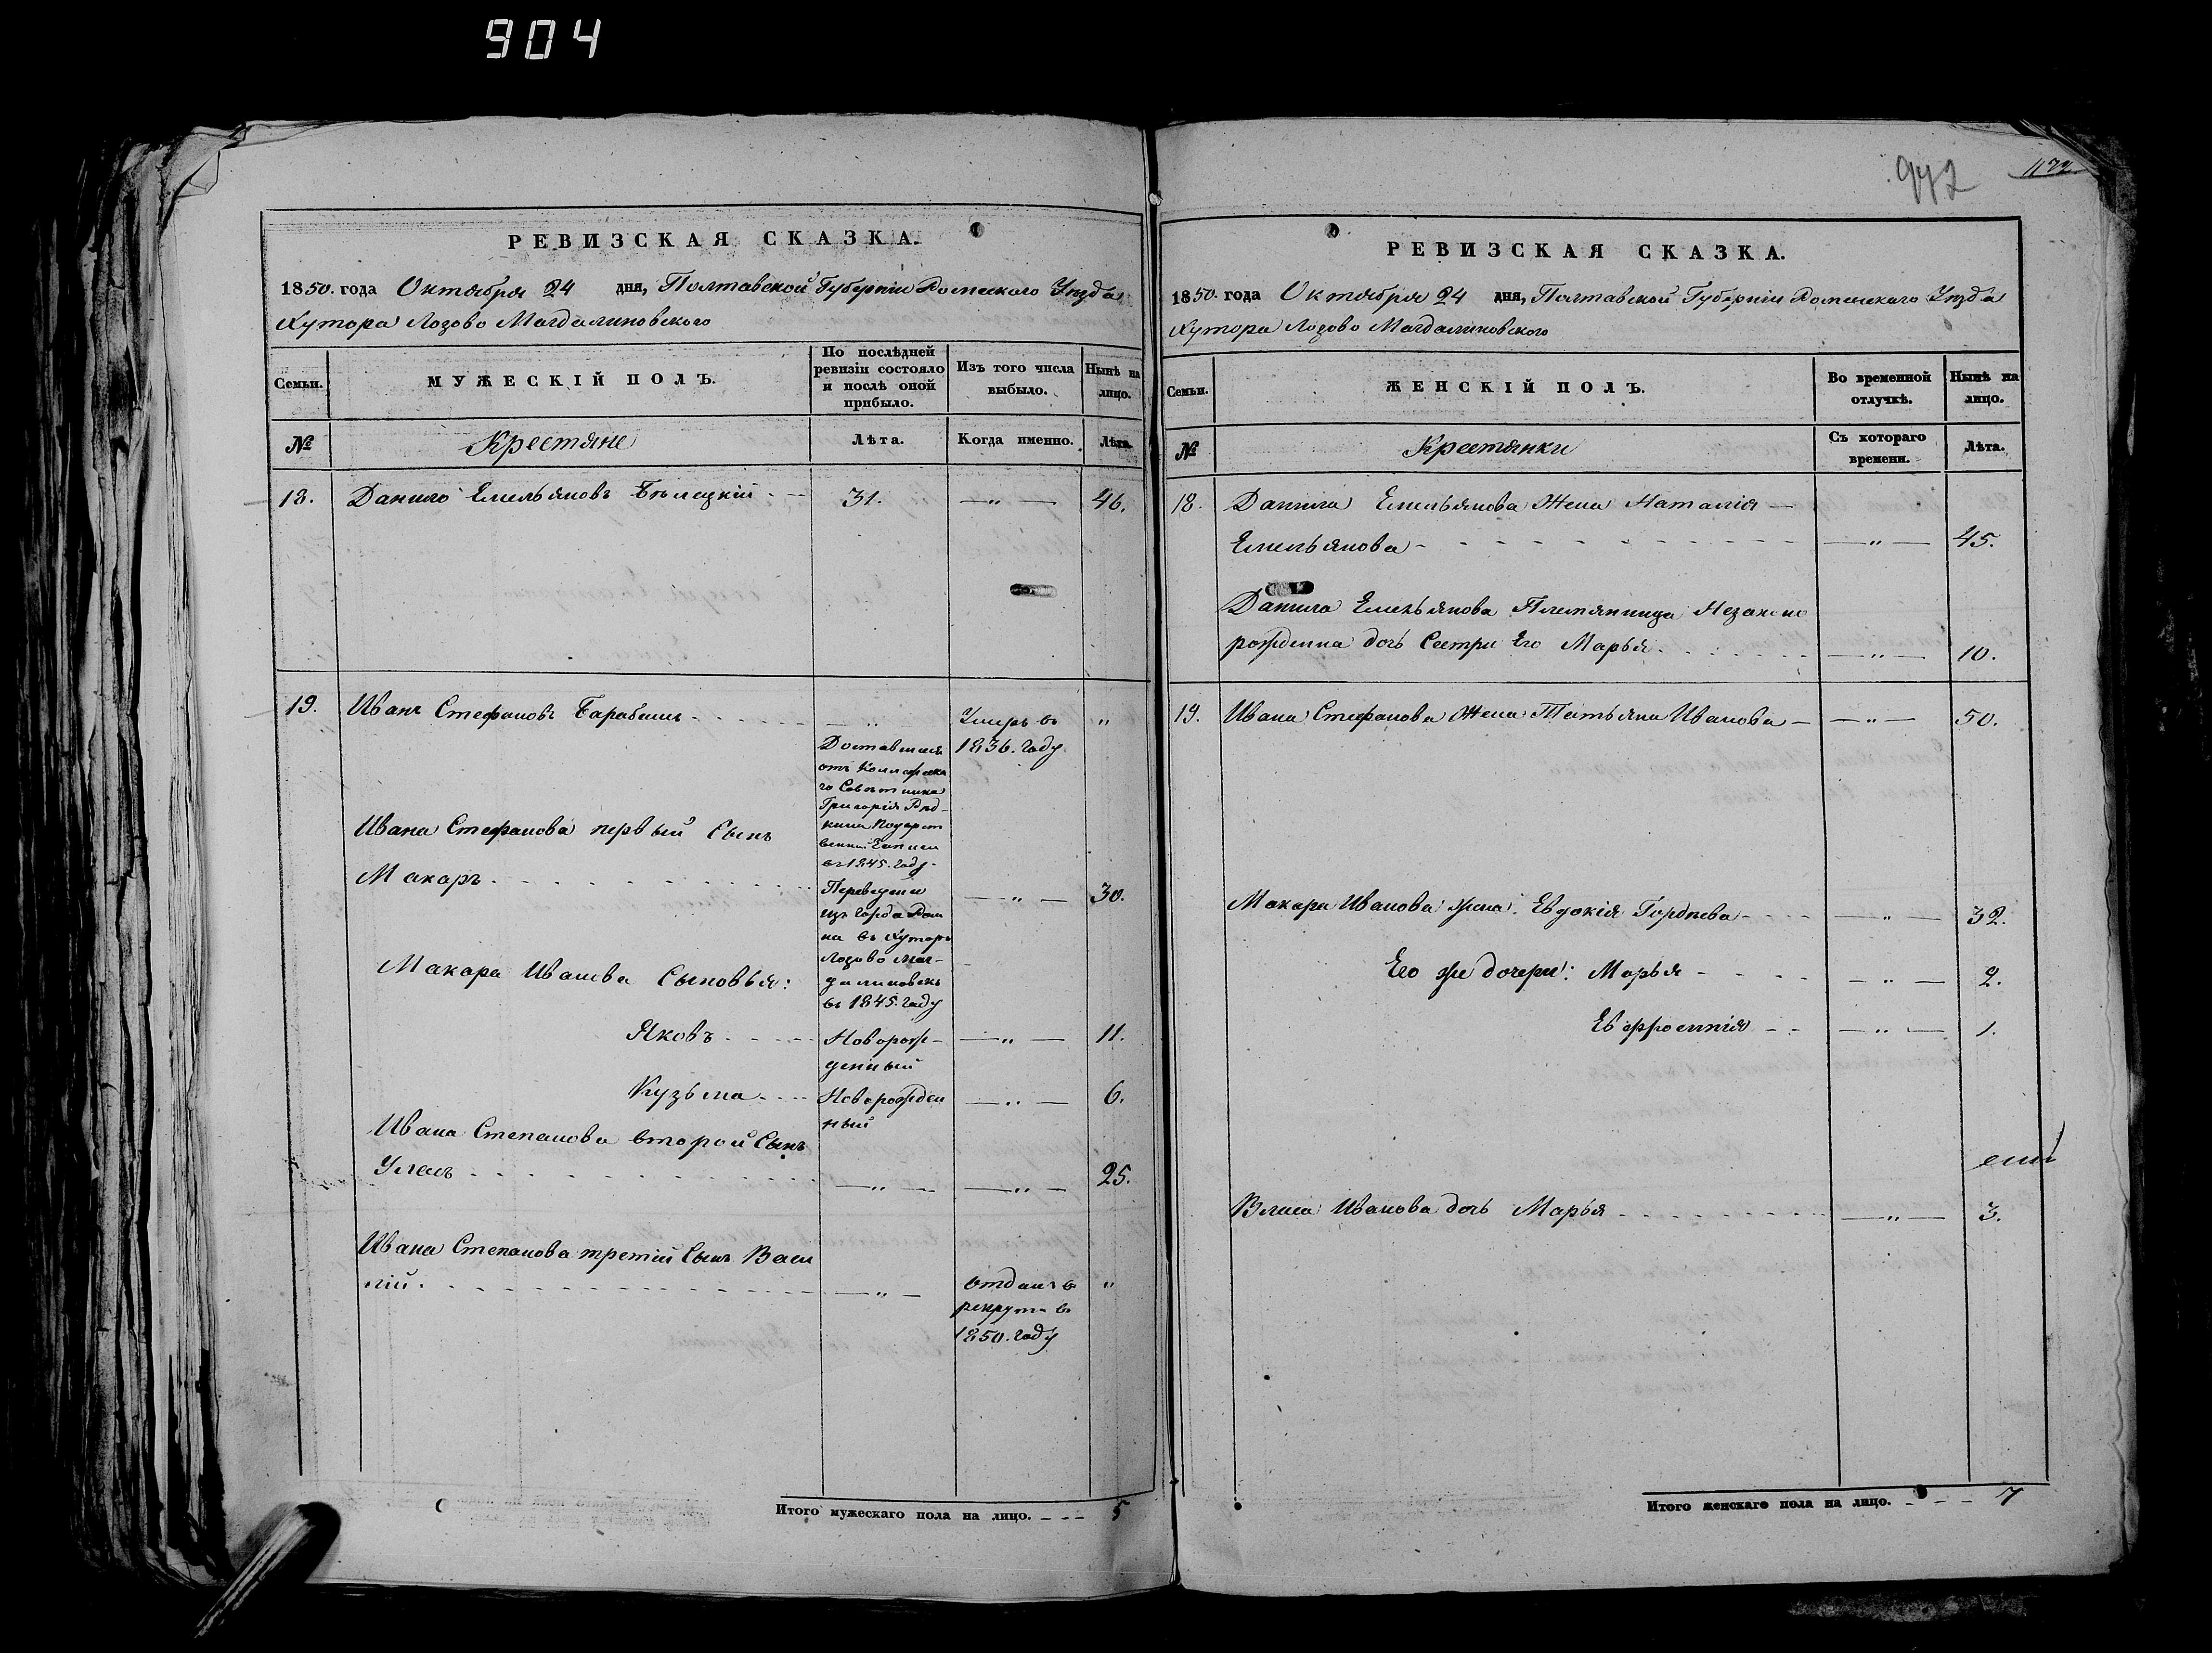 904
РЕВИЗСКАЯ СКАЗКА.
1850. года Октября 24 дня, Полтавской Губерніи Роменского Уезда
Хутора Лозово Магдалиновского
Семьи.
МУЖЕСКІЙ ПОЛЪ.
По послѣдней ревизіи состояло и послѣ оной прибыло.
Изъ того числа выбыло.
Нынѣ на лицо.
№
Крестяне
Лѣта.
Когда именно.
Лѣта.
18. Данило Емельяновъ Бѣлецкій - - 31. — " — 46.
19. Иванъ Стефановъ Барабашъ - - - - - — " — Умеръ в "
1836. году
Доставшися
отъ Коллежска
го Совѣтника
Григорія Рѣд-
кина Подарст
венной Записи
въ 1845. году.
Ивана Стефанова первый Сынъ
Макаръ - - - - - - - — " — 30.
Переведени
изъ города Ром
на въ Хуторъ
Лозово Маг-
далиновскъ
въ 1845. году
Макара Иванова Сыновья:
Яковъ - - - - Новорож- — " — 11.
денный
Кузьма - - - Новорожден — " — 6.
ный
Ивана Степанова второй Сынъ
Уласъ - - - - - - - - — " — — " — 25.
Ивана Степанова третій Сынъ Васи
лій. - - - - - - - - — " — отданъ в "
рекруты в
1850. году
Итого мужескаго пола на лицо. - - - 5
992
1172
РЕВИЗСКАЯ СКАЗКА.
1850. года Октября 24 дня, Полтавской Губерніи Роменскаго Уезда
Хутора Лозово Магдалиновского
Семьи.
ЖЕНСКІЙ ПОЛЪ.
Во временной отлучкѣ.
Нынѣ на лицо.
№
Крестянки
Съ котораго времени.
Лѣта.
18. Данила Емельянова Жена Наталія —
Емельянова - - - - - - - - — " — 45.
Данила Емельянова Племянница Незаконо
рожденна дочь Сестри Его Марья - - - - — " — 10.
19. Ивана Стефанова Жена Татьяна Иванова — — " — 50.
Макара Иванова жена: Евдокія Гордѣева - - - — " — 32.
Его же дочери: Марья - - - - — " — 2.
Евфросинія - - — " — 1.
Власа Иванова дочь Марья - - - - - - - — " — 3.
Итого женскаго пола на лицо. - - - 7